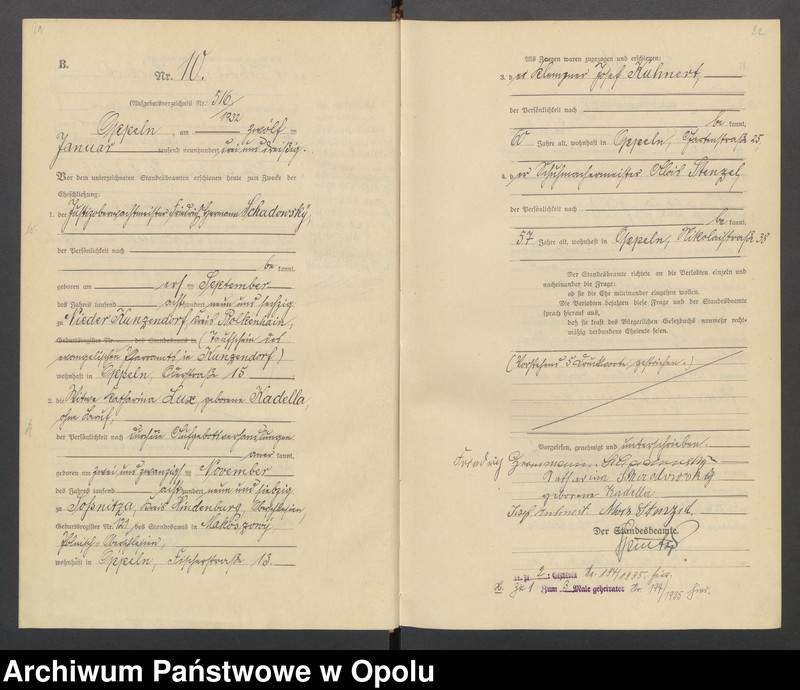 B.
Nr. 10.
(Aufgebotsverzeichnis Nr. 516/1932
Oppeln, am zwölf ten
Januar tausend neunhundert drei und dreißig.
Vor dem unterzeichneten Standesbeamten erschienen heute zum Zwecke der
Eheschließung:
1. der Justizoberwachtmeister Friedrich Hermann Schadowsky,
der Persönlichkeit nach
be kannt,
geboren am ersten September
des Jahres tausend achthundert neun und sechzig
zu Nieder Kunzendorf, Kreis Bolkenhain,
Geburtsregister Nr. des Standesamts in (Taufschein des
evangelischen Pfarramts in Kunzendorf)
wohnhaft in Oppeln, Oderstraße 15
2. die Witwe Katharina Lux, geborene Kadella,
ohne Beruf,
der Persönlichkeit nach durch die Aufgebotsverhandlungen
aner kannt,
geboren am zwei und zwanzigsten November
des Jahres tausend achthundert neun und siebzig
zu Sosnitza, Kreis Hindenburg, Oberschlesien,
Geburtsregister Nr. 121 des Standesamts in Makoszowy,
Polnisch-Oberschlesien,
wohnhaft in Oppeln, Fischerstraße 13.
22
Als Zeugen waren zugezogen und erschienen:
3. der Klempner Josef Kuhnert,
der Persönlichkeit nach
be kannt,
Jahre alt, wohnhaft in Oppeln, Gartenstraße 25,
4. der Schuhmachermeister Alois Stenzel,
der Persönlichkeit nach
be kannt,
57 Jahre alt, wohnhaft in Oppeln, Nikolaistraße 38
Der Standesbeamte richtete an die Verlobten einzeln und
nacheinander die Frage:
ob sie die Ehe miteinander eingehen wollen.
Die Verlobten bejahten diese Frage und der Standesbeamte
sprach hierauf aus,
daß sie kraft des Bürgerlichen Gesetzbuchs nunmehr recht-
mäßig verbundene Eheleute seien.
(Vorstehend 5 Druckworte gestrichen.)
Vorgelesen, genehmigt und unterschrieben.
Friedrich Hermann Schadowsky
Katharina Schadowsky
geborene Kadella
Josef Kuhnert Alois Stenzel
Der Standesbeamte.
zu 2 Nr. 174/1935 hier.
zu 1 zum 3 Male geheiratet Nr. 174/1935 hier.
Archiwum Państwowe w Opolu